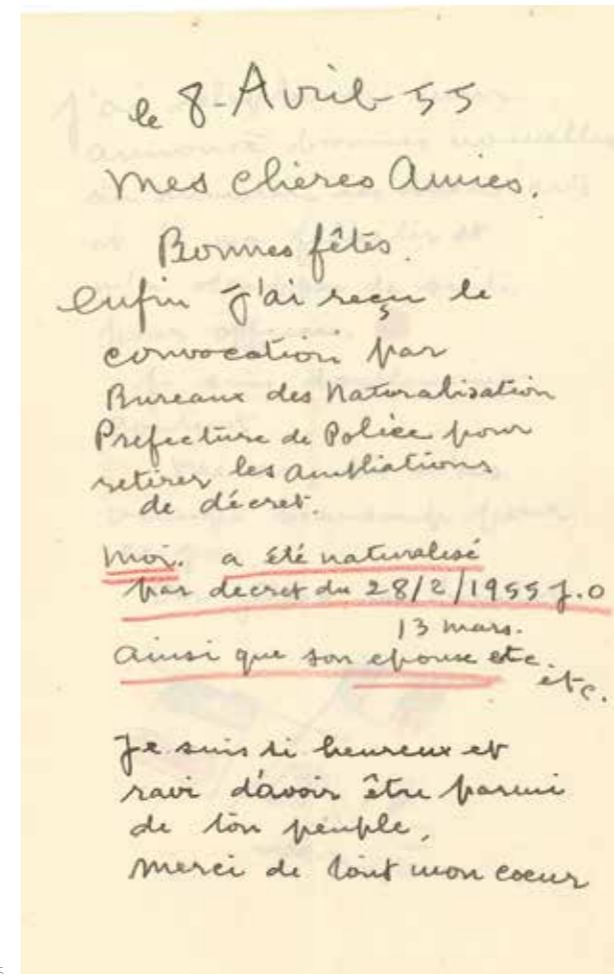 le 8-Avril-55
mes chères Amies.
Bonnes fêtes.
enfin j'ai reçu le
convocation par
Bureaux des Naturalisation
Prefecture de Police pour
retirer les ampliations
de décret.
Moi. a été naturalisé
par decret du 28/2/1955 J.O
13 mars.
Ainsi que son epouse etc.
etc.
Je suis si heureux et
ravi d'avoir être parmi
de ton peuple,
merci de tout mon coeur